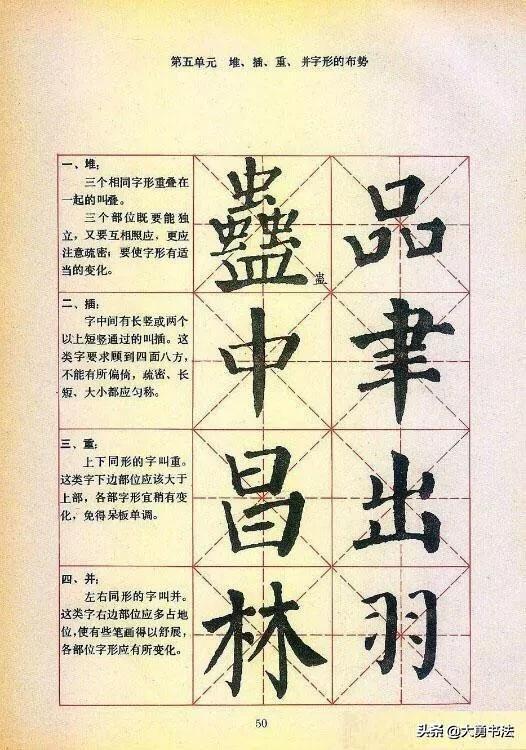 第五单元 堆、插、重、并字形的布势
一、堆：
三个相同字形重叠在
一起的叫叠。
三个部位既要能独
立，又要互相照应，更应
注意疏密；要使字形有适
当的变化。
蠱 品
蛊
二、插：
字中间有长竖或两个
以上短竖通过的叫插。这
类字要求顾到四面八方，
不能有所偏倚，疏密、长
短、大小都应匀称。
中 聿
三、重：
上下同形的字叫重。
这类字下边部位应该大于
上部，各部字形宜稍有变
化，免得呆板单调。
昌 出
四、并：
左右同形的字叫并。
这类字右边部位应多占地
位，使有些笔画得以舒展，
各部位字形应有所变化。
林 羽
50
头条 @大勇书法